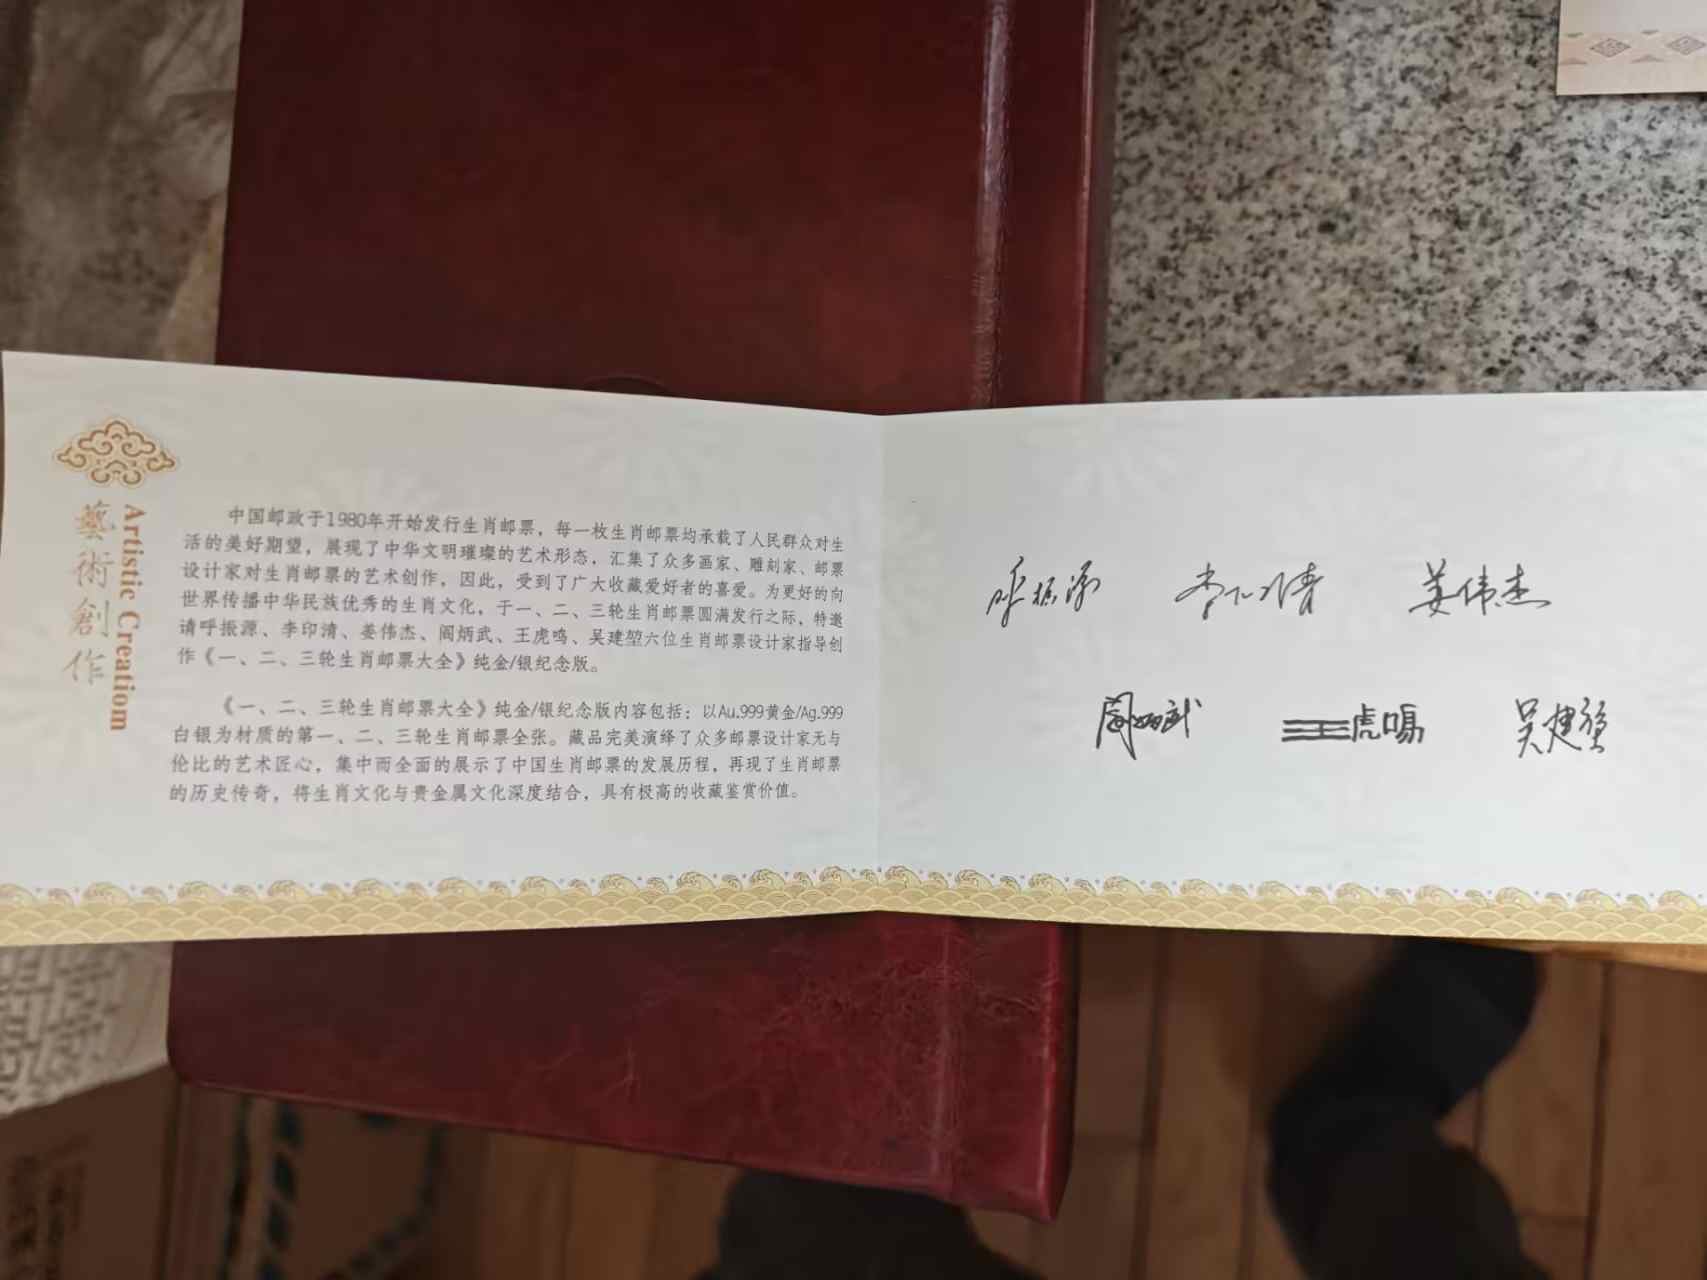 藝術創作
Artistic Creatiom
中国邮政于1980年开始发行生肖邮票，每一枚生肖邮票均承载了人民群众对生
活的美好期望，展现了中华文明璀璨的艺术形态，汇集了众多画家、雕刻家、邮票
设计家对生肖邮票的艺术创作，因此，受到了广大收藏爱好者的喜爱。为更好的向
世界传播中华民族优秀的生肖文化，于一、二、三轮生肖邮票圆满发行之际，特邀
请呼振源、李印清、姜伟杰、阎炳武、王虎鸣、吴建堃六位生肖邮票设计家指导创
作《一、二、三轮生肖邮票大全》纯金/银纪念版。
《一、二、三轮生肖邮票大全》纯金/银纪念版内容包括：以Au.999黄金/Ag.999
白银为材质的第一、二、三轮生肖邮票全张。藏品完美演绎了众多邮票设计家无与
伦比的艺术匠心，集中而全面的展示了中国生肖邮票的发展历程，再现了生肖邮票
的历史传奇，将生肖文化与贵金属文化深度结合，具有极高的收藏鉴赏价值。
呼振源 李印清 姜伟杰
阎炳武 王虎鸣 吴建堃